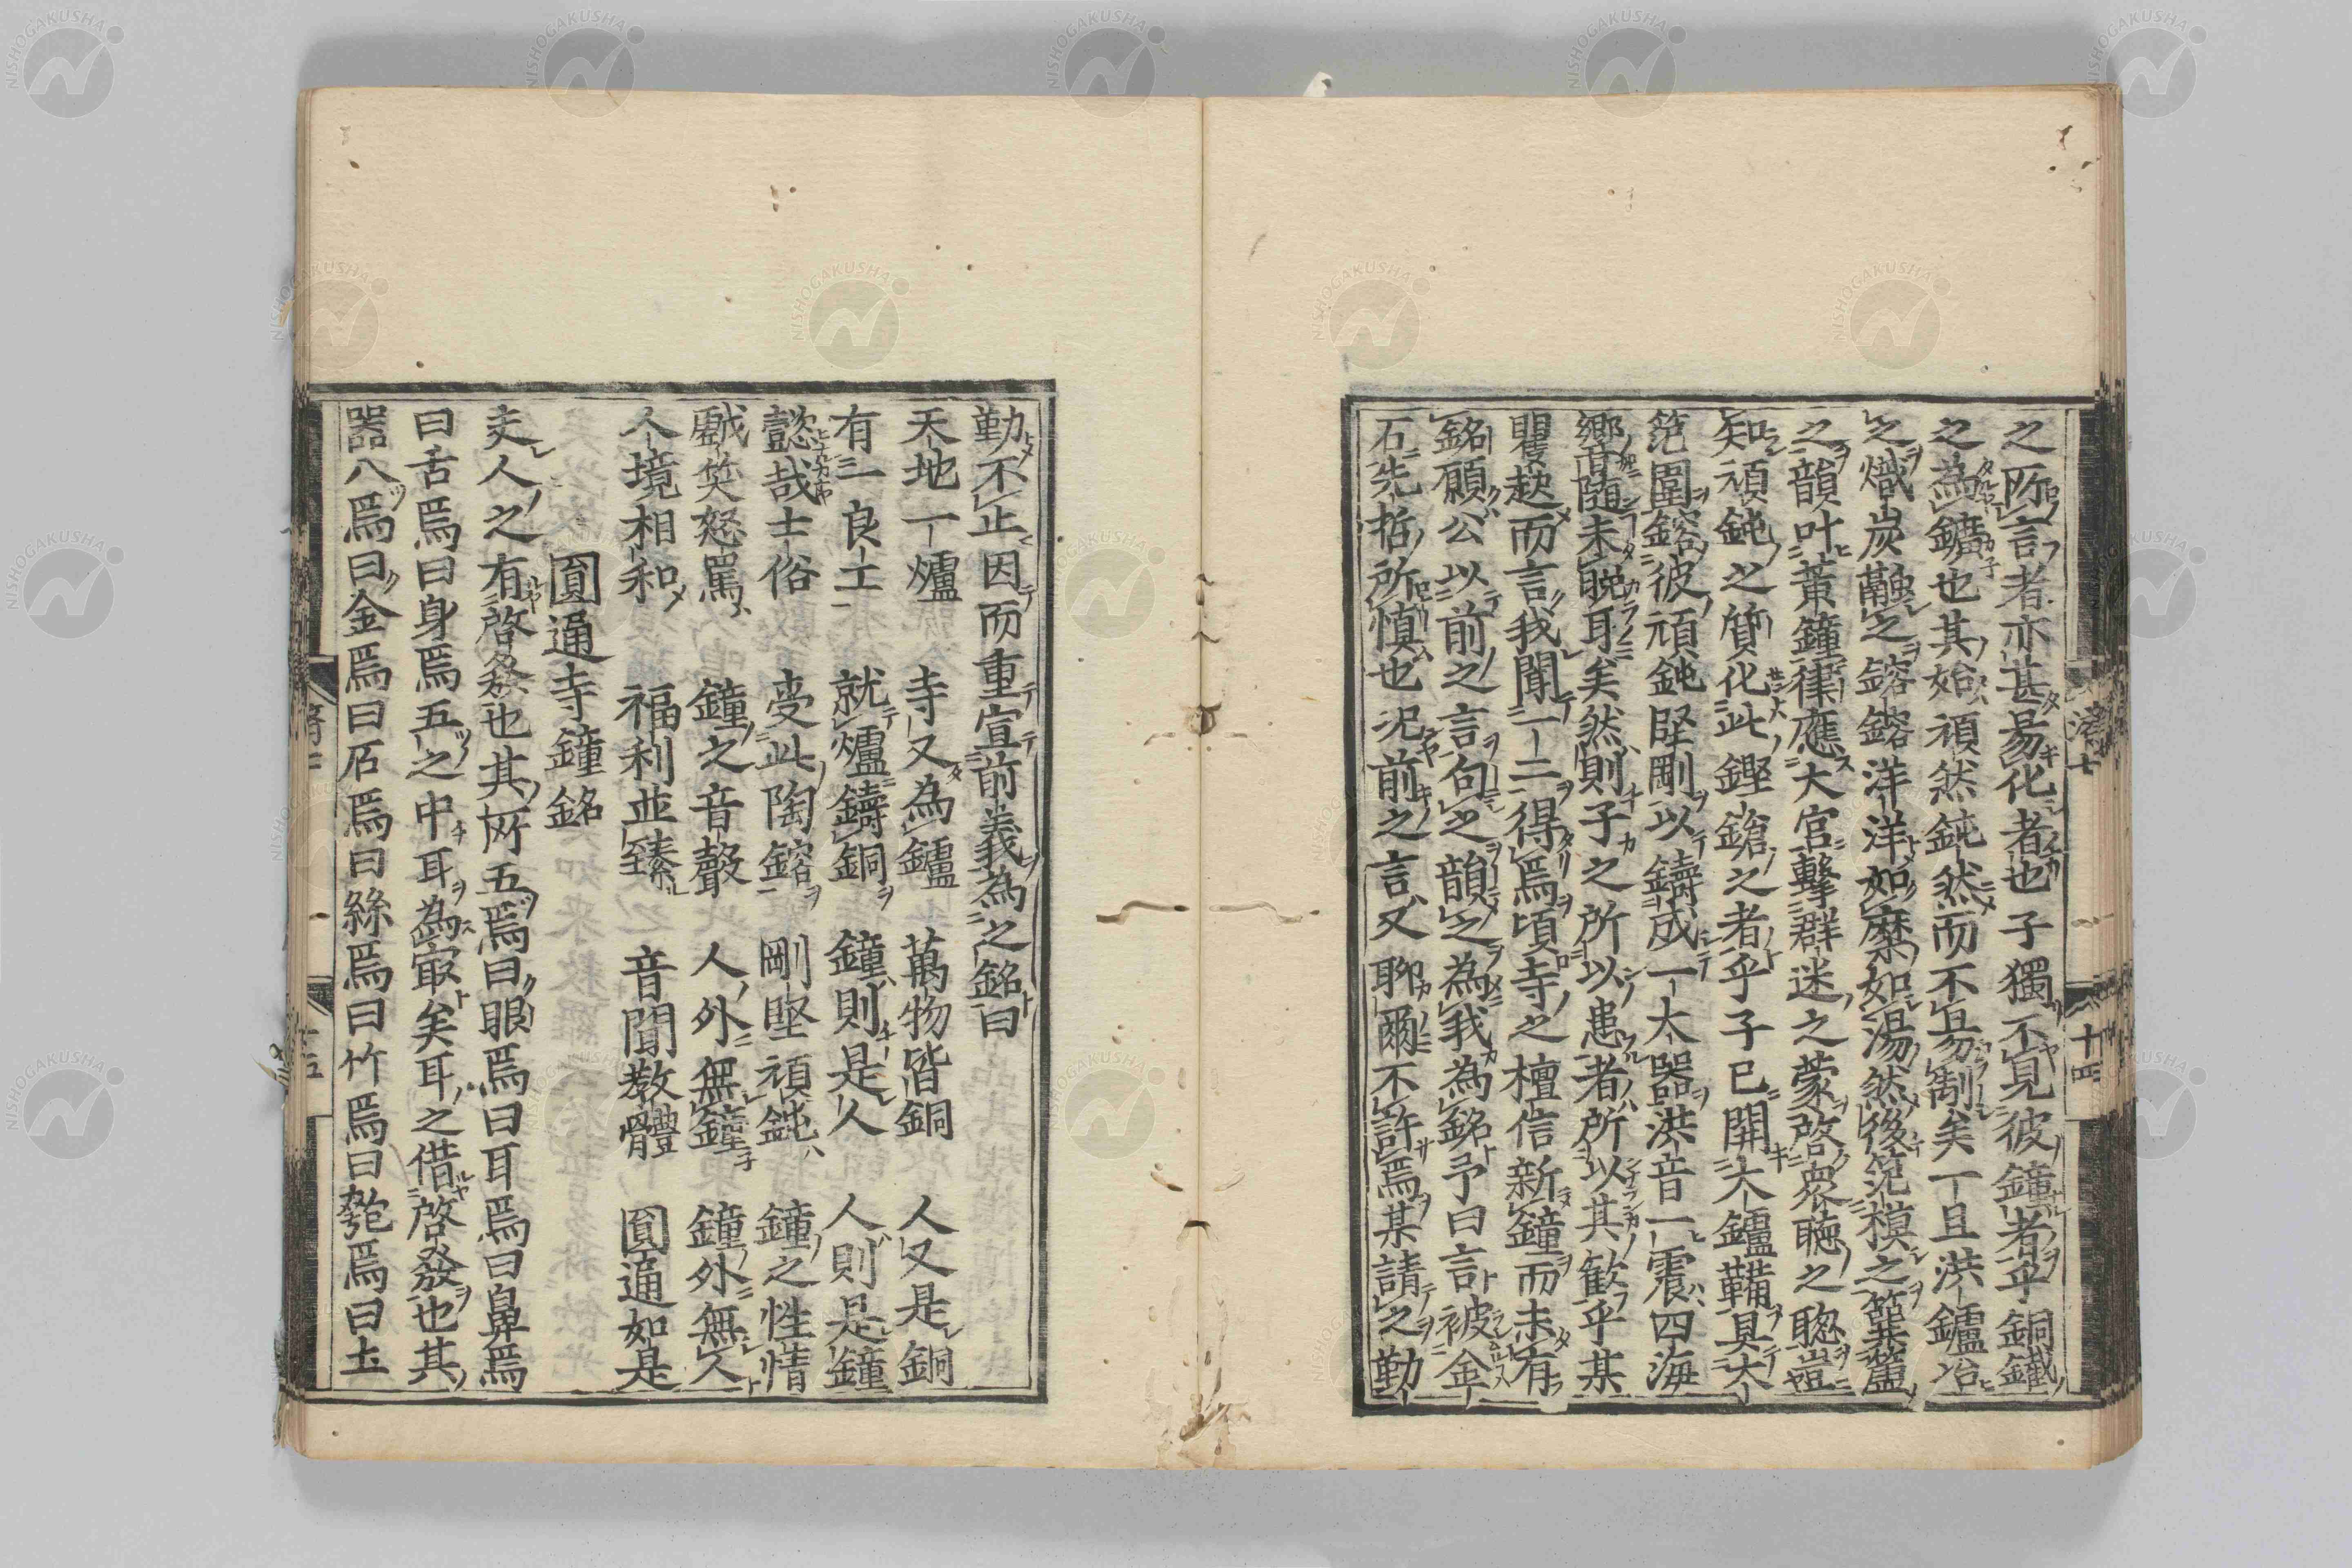 之所言者亦甚易化者也子獨不見彼鐘者乎銅鐵
之為鑛也其始頑然鈍然而不易制矣一且洪鑪冶
之熾炭融之鎔鎔洋洋如糜如湯然後笵模之簨簴
之韻叶黃鐘律應大官擊群迷之蒙啓衆聴之聦豈
知頑鈍之質化此鏗鎗之者乎子已開大鑪鞴具大
笵圍鎔彼頑鈍堅剛以鑄成一大器洪音一震四海
嚮隨未晩耳矣然則子之所以患者所以其歓乎某
矍趍而言我聞一二得焉頃寺之檀信新鐘而未有
銘願公以前之言句之韻之為我為銘予曰言被金
石先哲所慎也况前之言又聊爾不許焉某請之勤
勤不止因而重宣前義為之銘曰
天地一爐 寺又為鑪 萬物皆銅 人又是銅
有一良工 就爐鑄銅 鐘則是人 人則是鐘
懿哉士俗 受此陶鎔 剛堅頑鈍 鐘之性情
戲笑怒罵 鐘之音聲 人外無鐘 鐘外無人
人境相和 福利並臻 音聞教體 圓通如是
圓通寺鐘銘
夫人之有啓發也其所五焉曰眼焉曰耳焉曰鼻焉
曰舌焉曰身焉五之中耳為冣矣耳之借啓發也其
器八焉曰金焉曰石焉曰絲焉曰竹焉曰匏焉曰土
十四
NISHOGAKUSHA